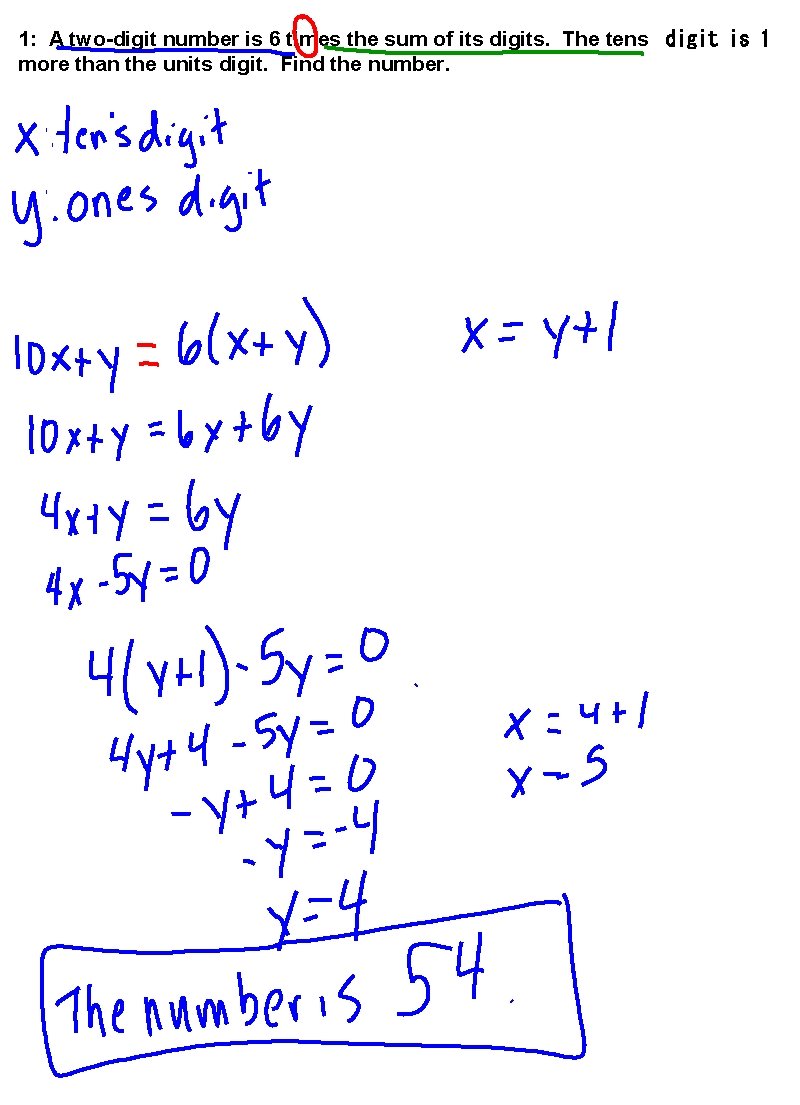 1: A two-digit number is 6 times the sum of its digits. The tens digit is 1
more than the units digit. Find the number.
x: ten's digit
y: ones digit
10x+y = 6(x+y)
x = y+1
10x+y = 6x+6y
4x+y = 6y
4x-5y=0
4(y+1)-5y=0
4y+4-5y=0
-y+4=0
-y=-4
y=4
x = 4+1
x = 5
The number is 54.